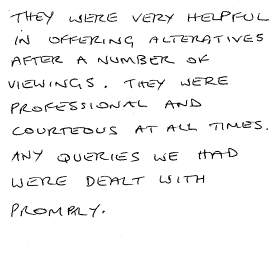 THEY WERE VERY HELPFUL
IN OFFERING ALTERATIVES
AFTER A NUMBER OF
VIEWINGS. THEY WERE
PROFESSIONAL AND
COURTEOUS AT ALL TIMES.
ANY QUERIES WE HAD
WERE DEALT WITH
PROMPLY.